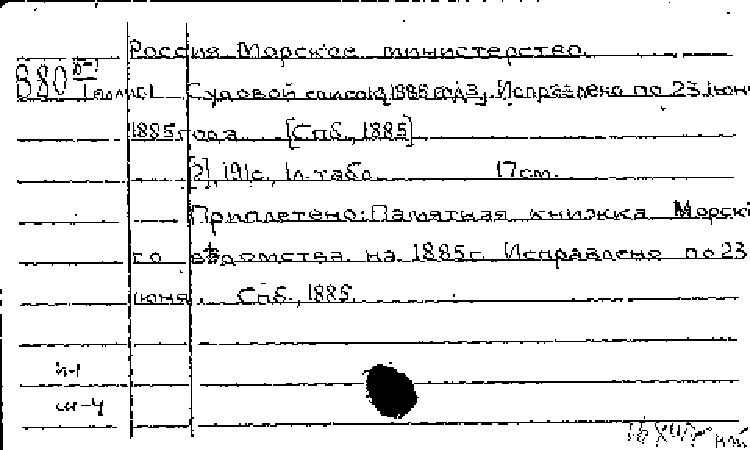 Россия Морское министерство.
880 Судовой список 1885 года. Исправлено по 23 июн
1885 года [Спб., 1885]
[2], 191с., 1л. табл. 17см.
Приплетено: Памятная книжка Морск
го вѣдомства на 1885г. Исправлено по 23
июня. Спб., 1885.
н-1